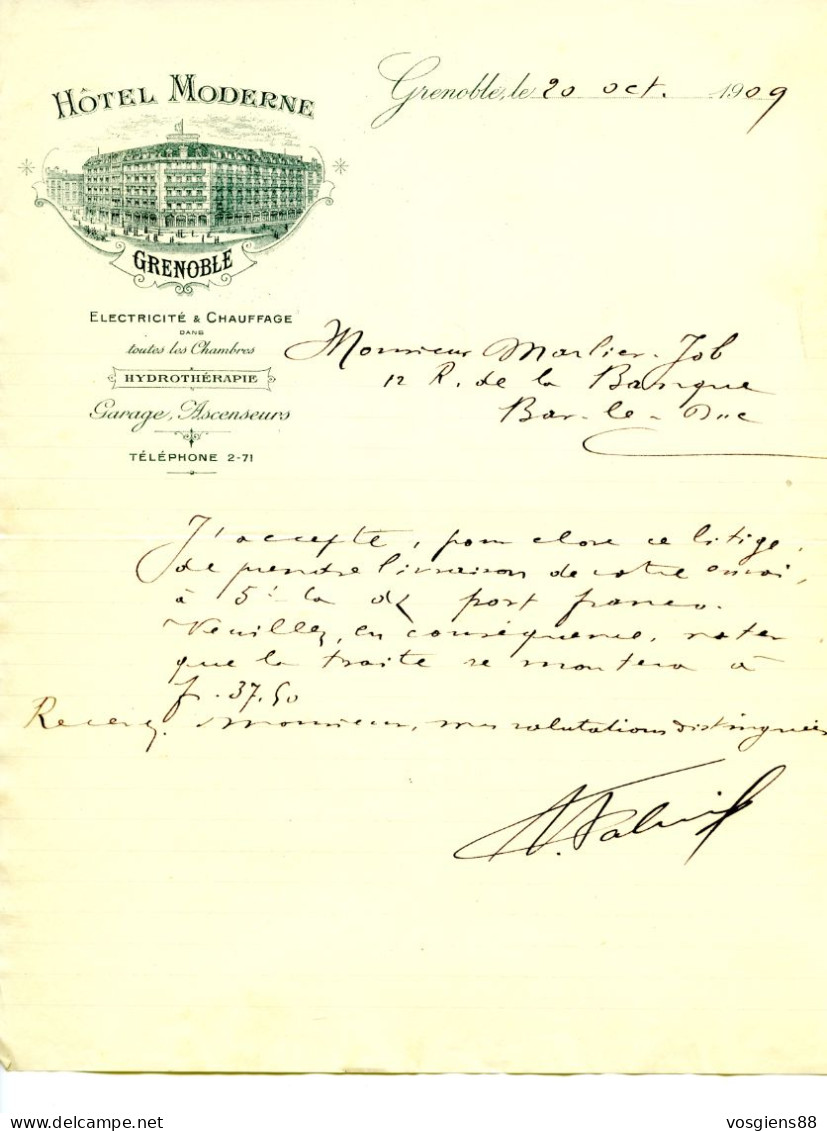 HÔTEL MODERNE
GRENOBLE
ELECTRICITÉ & CHAUFFAGE
DANS
toutes les Chambres
HYDROTHÉRAPIE
Garage, Ascenseurs
TÉLÉPHONE 2-71
Grenoble, le 20 oct. 1909
Monsieur Marlier-Job
12 R. de la Banque
Bar-le-Duc
J'accepte, pour clore ce litige,
de prendre livraison de votre envoi,
à 5f la dz port franco.
Veuillez, en conséquence, noter
que la traite se montera à
fr. 37.50
Recevez Monsieur, mes salutations distinguées
vosgiens88